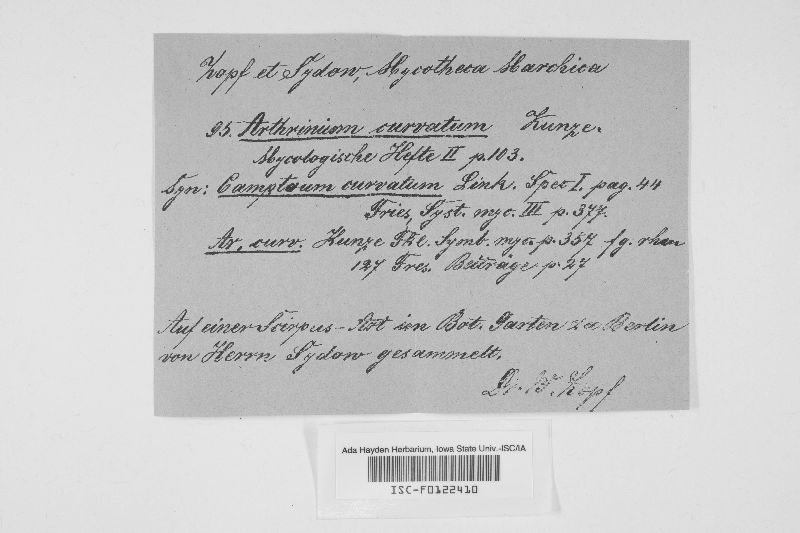 Zopf et Sydow, Mycotheca Marchica
95. Arthrinium curvatum Kunze.
Mycologische Hefte II p. 103.
Syn: Camptoum curvatum Link. Spez I. pag. 44
Fries, Syst. myc. III p. 377.
Ar. curv. Kunze Fkl. Symb. myc. p. 357 fg. rhen
127 Fres. Beiträge p. 27
Auf einer Scirpus-Art im Bot. Garten zu Berlin
von Herrn Sydow gesammelt.
Dr. W. Zopf
Ada Hayden Herbarium, Iowa State Univ.-ISC/IA
ISC-F0122410